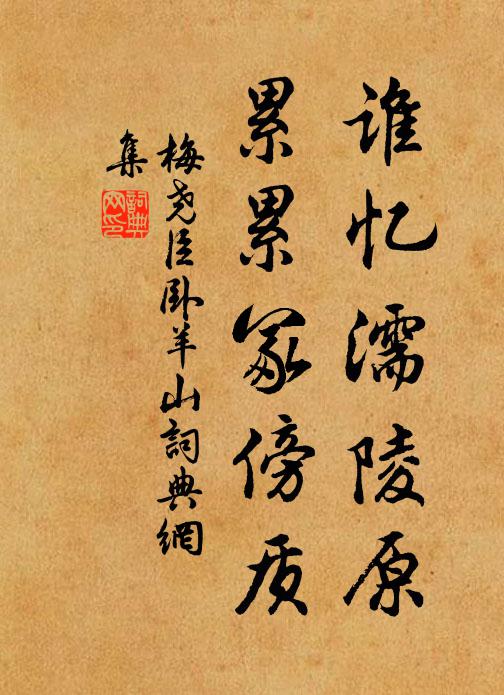 谁忆濡陵原
累累冢傍质
梅尧臣卧羊山詞典網
集
詞典網印